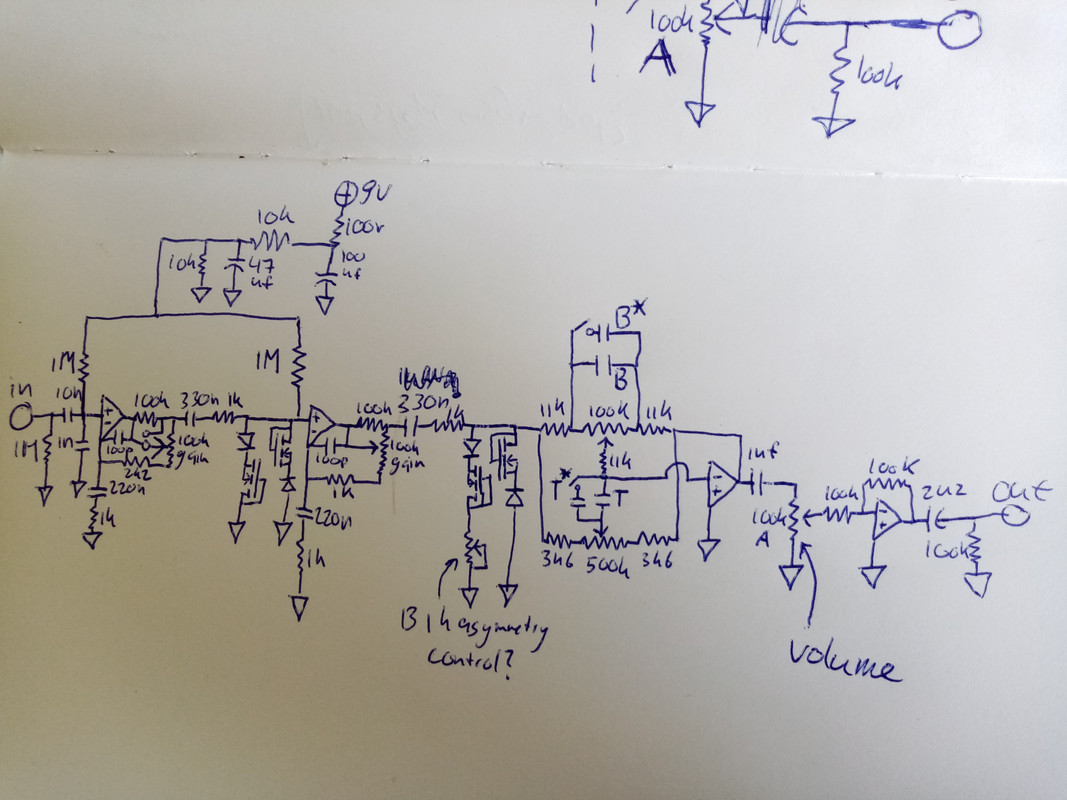 100k
A
100k
+9V
100r
10k
10k
47
uf
100
uf
1M
1M
in
10n
1M
1n
100k
330n
1k
100p
100k
gain
2k2
220n
1k
100k
330n
1k
100p
100k
gain
1k
220n
1k
B*
B
11k
100k
11k
11k
T*
T
3k6
500k
3k6
1uf
100k
A
100k
100k
2u2
out
100k
B1k asymmetry
control?
volume